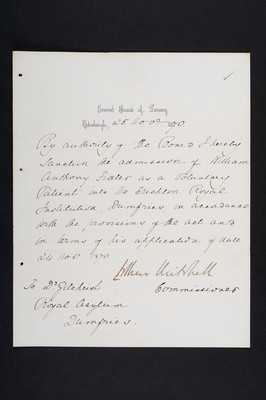 General Board of Lunacy,
Edinburgh, 25 Nov 1870
By authority of the Board I hereby
Sanction the admission of William
Anthony as a Voluntary
Patient into the Crichton Royal
Institution, Dumfries in accordance
with the provisions of the act and
in terms of his application of date
24 Nov. 1870.
Arthur Mitchell
Commissioner
To Dr Gilchrist
Royal Asylum
Dumfries.